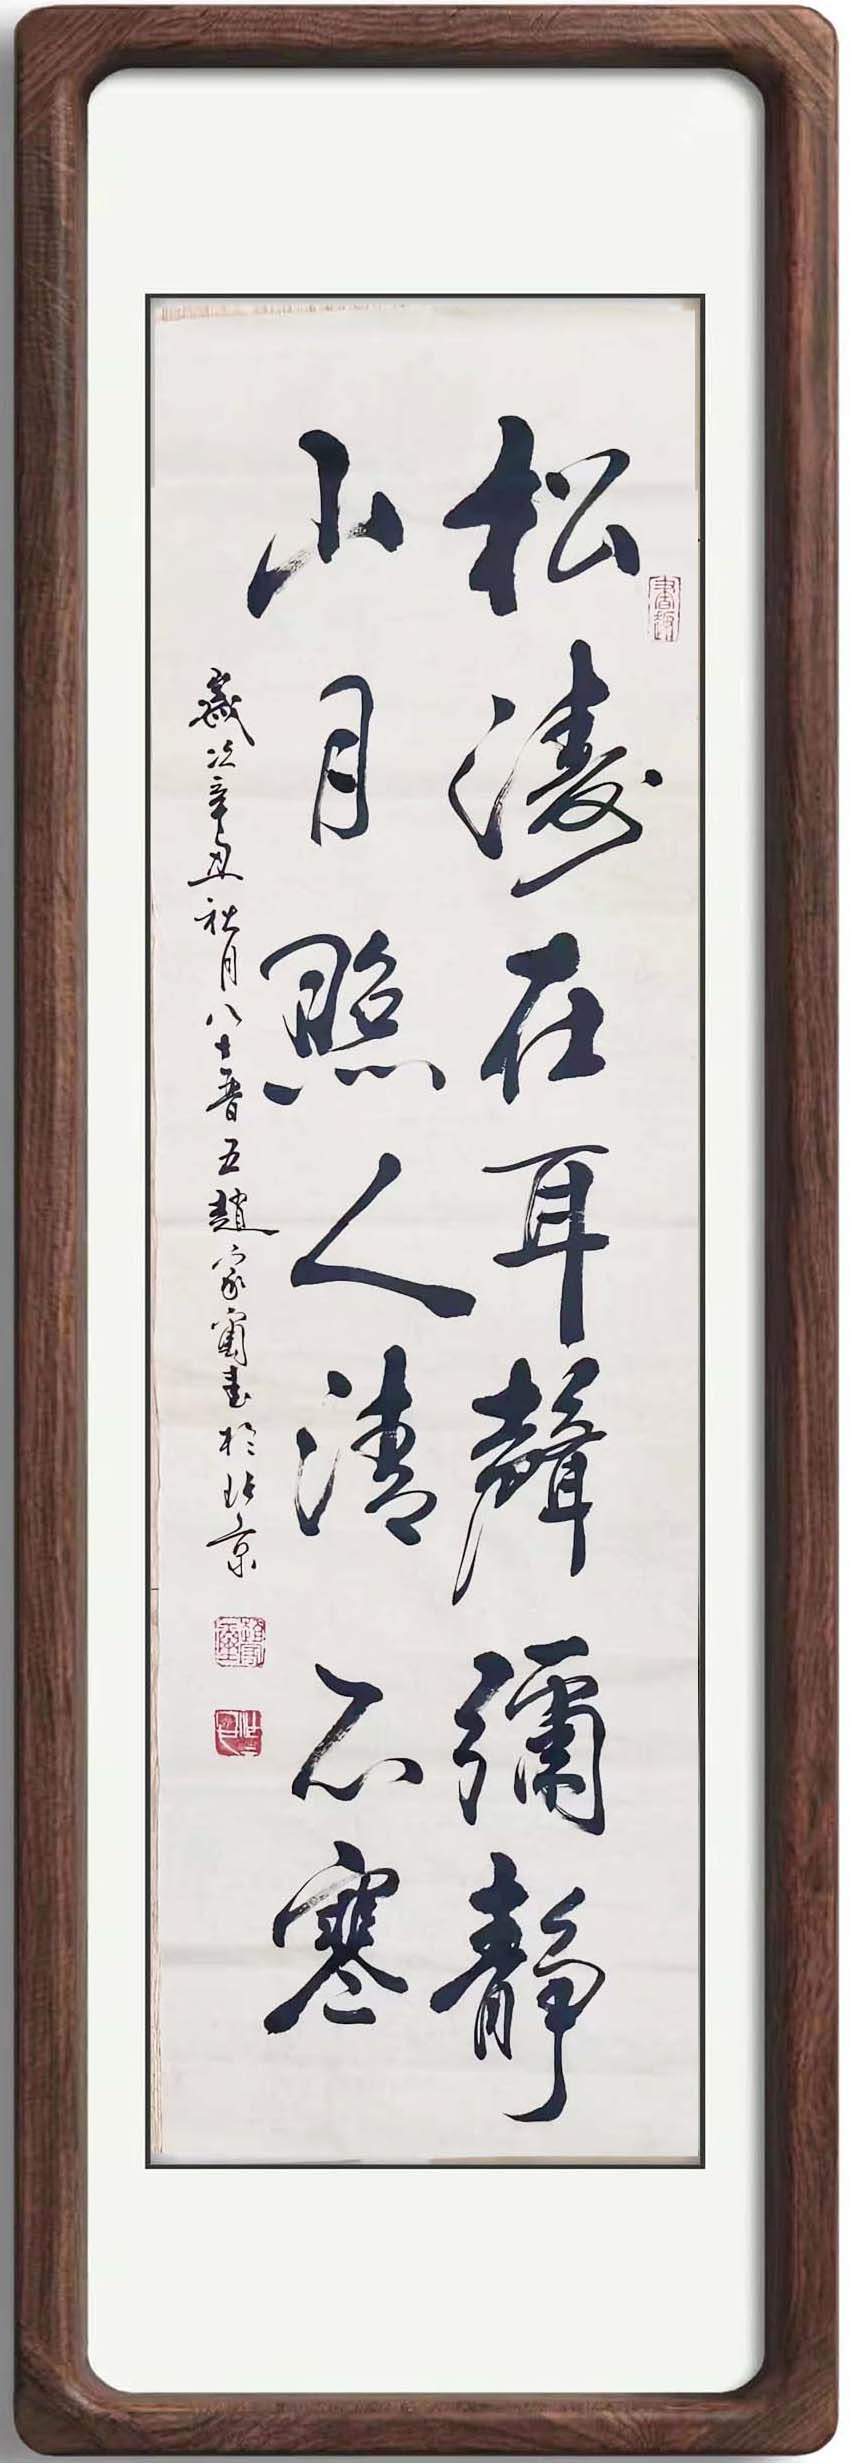 松濤在耳聲彌靜
山月照人清不寒
歲次辛丑秋月八十晉五趙家寶書於北京
書趣